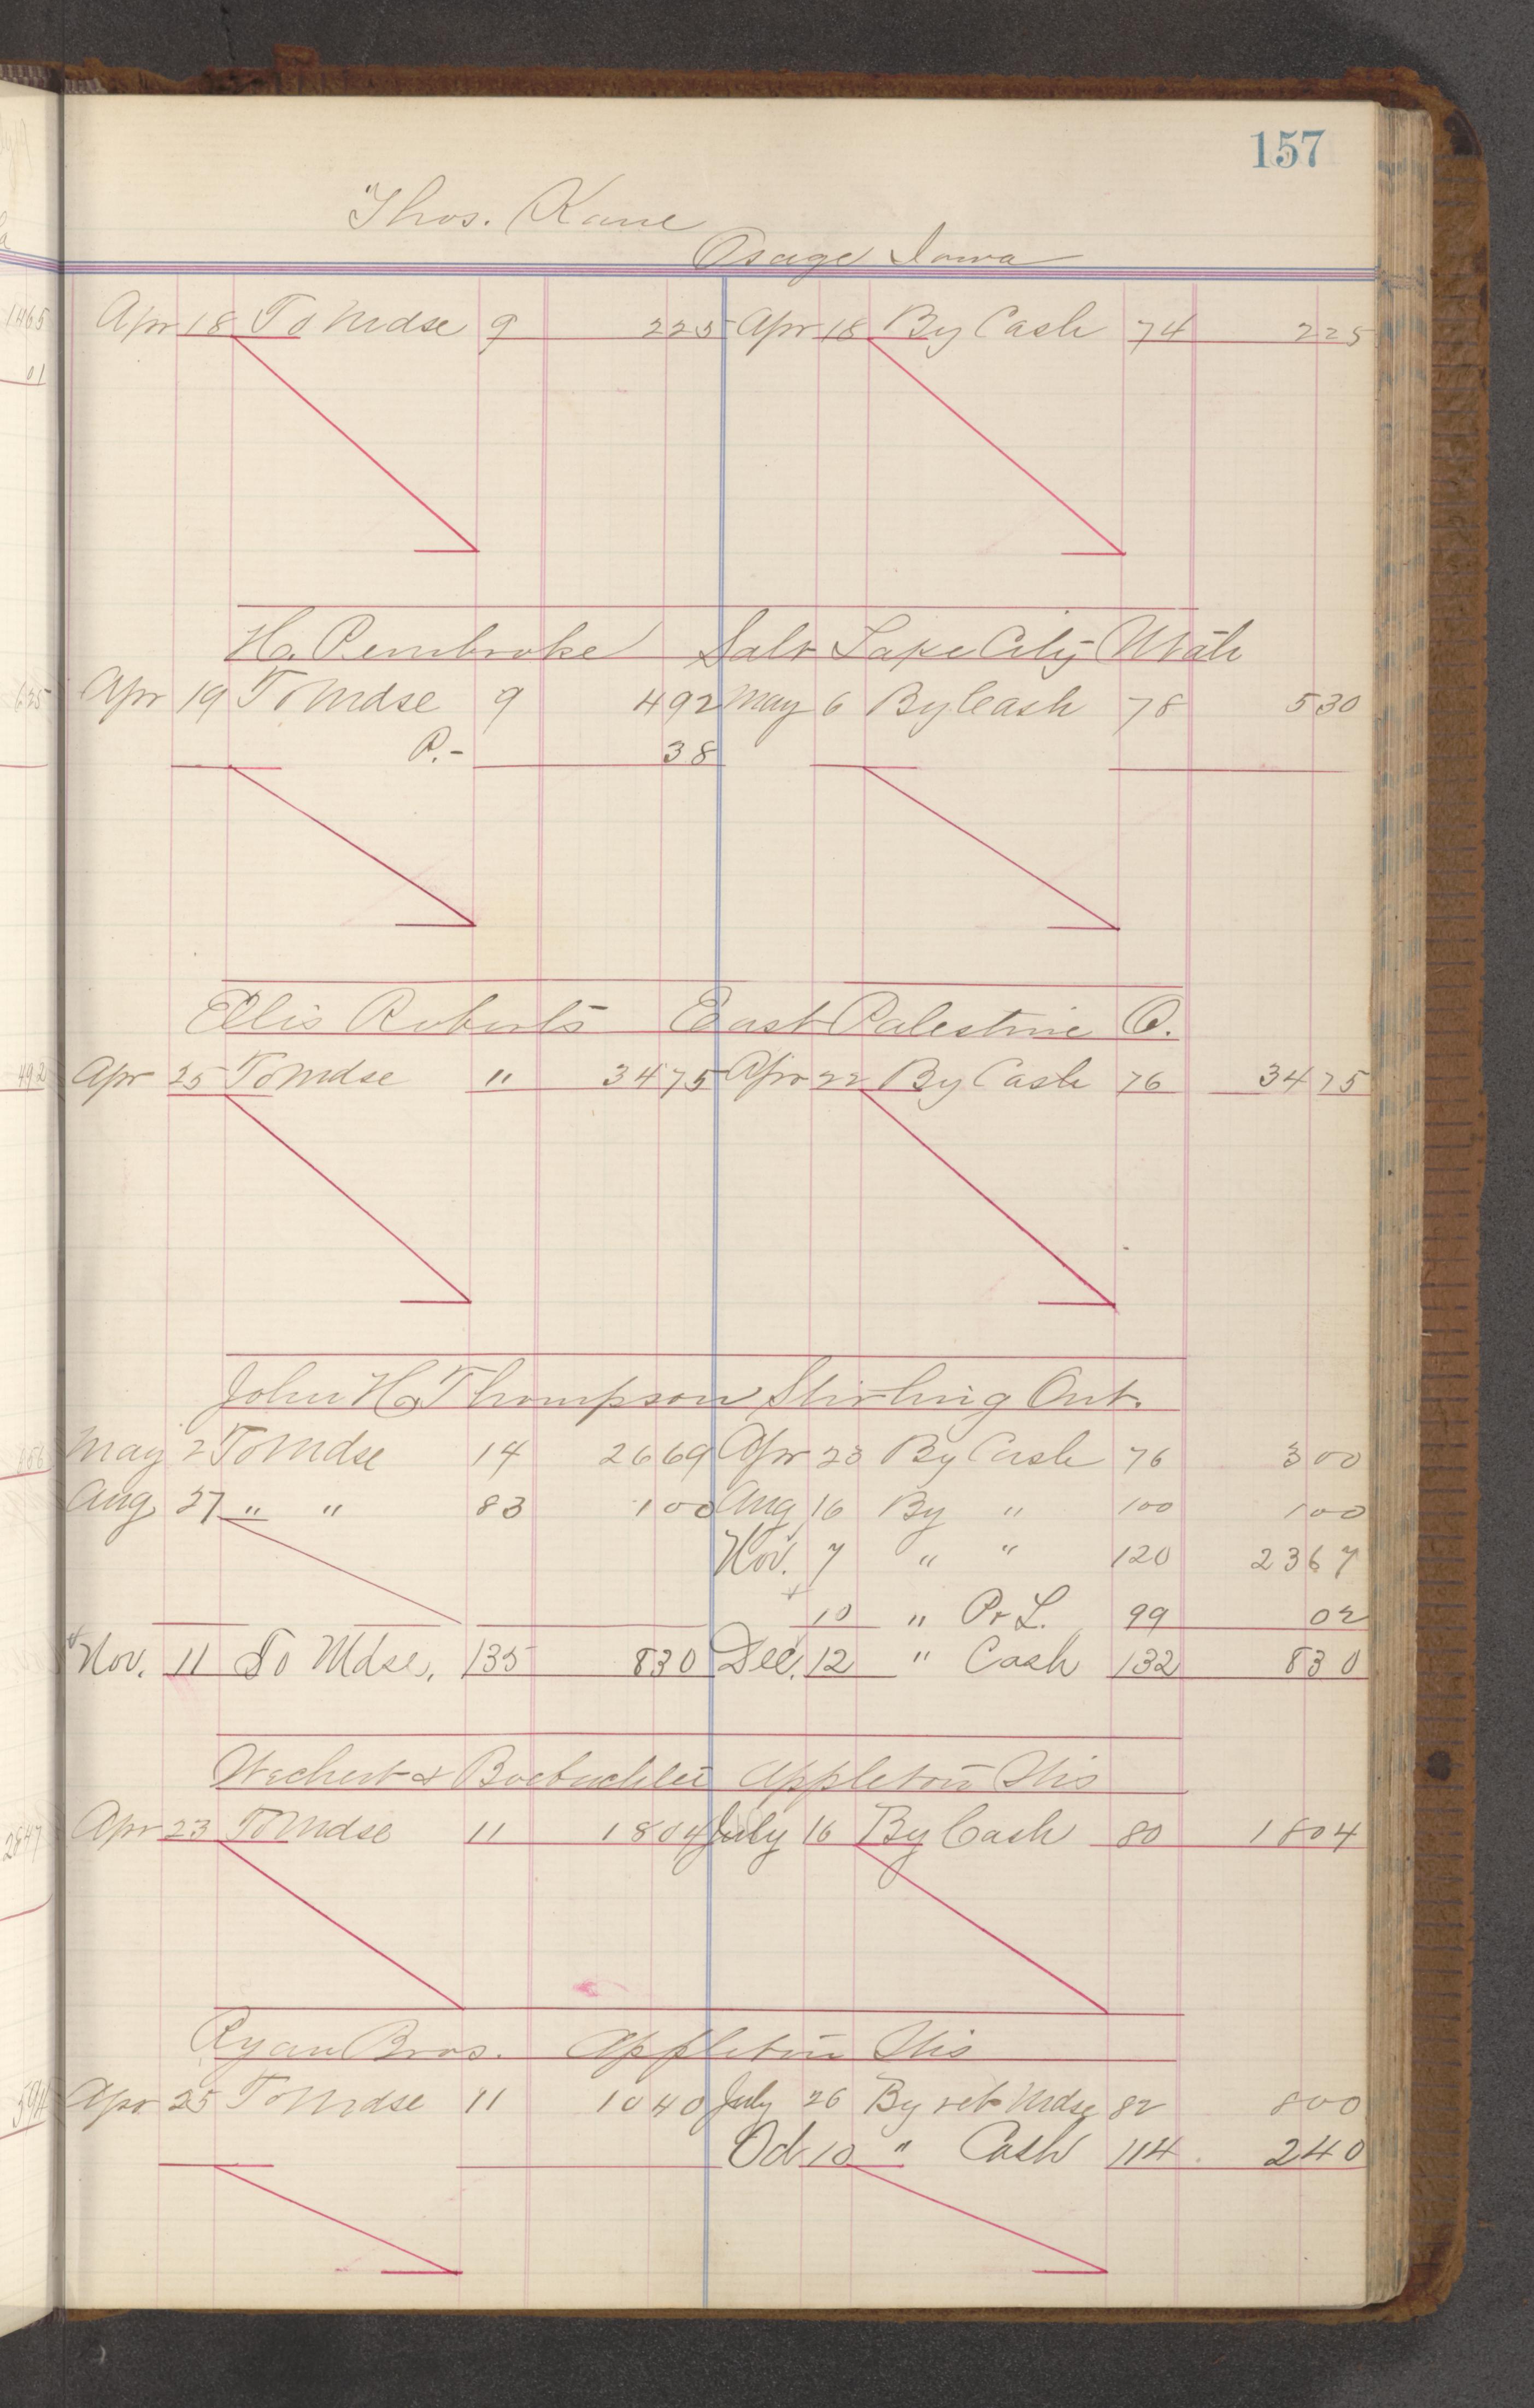 157
Thos. Kane
Osage Iowa
Apr 18 To Mdse 9 2 25 Apr 18 By Cash 74 2 25
H. Pembroke Salt Lake City Utah
Apr 19 To Mdse 9 4 92 May 6 By Cash 78 5 30
P.- 38
Ellis Roberts East Palestine O.
Apr 25 To Mdse " 34 75 Apr 22 By Cash 76 34 75
John H. Thompson Stirling Ont.
May 2 To Mdse 14 26 69 Apr 23 By Cash 76 3 00
Aug 27 " " 83 1 00 Aug 16 By " 100 1 00
Nov. 7 " " 120 23 67
10 " Pr L. 99 02
Nov. 11 To Mdse. 135 8 30 Dec. 12 " Cash 132 8 30
& Appleton Wis
Apr 23 To Mdse 11 18 04 July 16 By Cash 80 18 04
Ryan Bros. Appleton Wis
Apr 25 To Mdse 11 10 40 July 26 By ret Mdse 82 8 00
Oct 10 " Cash 114 2 40